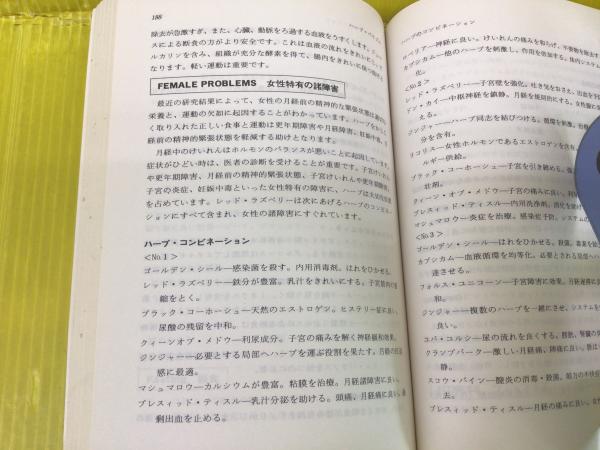 188
ハーブ・コンビネーション
除去が急激すぎ、また、心臓、動脈をろ過する血液をうすくします。
スによる断食の方がより安全です。これは血液の流れをきれいに
ルカリンを含み、組織が充分な酵素を得て、腸内をきれいに
なります。軽い運動は重要です。
FEMALE PROBLEMS 女性特有の諸障害
最近の研究結果によって、女性の月経前の精神的な緊張状態は
栄養と、運動の欠如に起因することがわかっています。ハーブを
く取り入れた正しい食事と運動は更年期障害や月経障害、妊娠中毒、
前の精神的緊張状態を軽減する助けとなります。
月経中のけいれんはホルモンのバランスが悪いことに起因しています。
症状がひどい時は、医者の診断を受けることが重要です。子宮けいれん
や更年期障害、月経前の精神的緊張状態、子宮けいれんや更年期障害、
子宮の炎症、妊娠中毒といった女性特有の障害に、ハーブは大切な
を占めています。レッド・ラズベリーは次にあげるハーブのコンビネー
ションにすべて含まれ、女性の諸障害にすぐれています。
ハーブ・コンビネーション
<No.1>
ゴールデン・シール—感染菌を殺す。内用消毒剤。はれをひかせる。
レッド・ラズベリー—鉄分が豊富。乳汁をきれいにする。子宮筋肉の収
縮をとく。
ブラック・コーホーシュ—天然のエストロゲン。ヒステリー症に良い。
尿酸の残留を中和。
クィーンオブ・メドウ—利尿成分。子宮の痛みを解く神経緩和効果。
ジンジャー—必要とする局部へハーブを運ぶ役割を果たす。月経の
感に最適。
マシュマロウ—カルシウムが豊富。粘膜を治療。月経諸障害に良い。
ブレスィッド・ティスル—乳汁分泌を助ける。頭痛、月経痛に良い。
剰出血を止める。
ハーブのコンビネーション
ロベリア—神経に良い。けいれんの痛みを和らげ、不要物を除去
カプシカム—他のハーブを刺激し、作用を倍加する。体内システム
化。
<No.2>
レッド・ラズベリー—子宮壁を強化。吐き気をおさえ、出血を
ドン・カイ—中枢神経を鎮静。月経を規則的にする。
える。
ジンジャー—ハーブ同志を結びつける。循環を刺激。
分を含有。
リコリス—女性ホルモンであるエストロゲンを含有。
ルギー供給。
ブラック・コーホーシュ—子宮を引き締める。
壮剤。
クィーン・オブ・メドウ—子宮の痛みに良い。
ブレスィッド・ティスル—内用洗浄剤。消化を助け
マシュマロウ—炎症を治療。感染症予防。システムの
<No.3>
ゴールデン・シール—はれをひかせる。殺菌。毒素を
カプシカム—血液循環を均等化。必要とされる局部へハー
達させる。
フォルス・ユニコーン—子宮障害に効果。月経
良い。
ジンジャー—複数のハーブを一緒にさせ、システムを
良い。
ユバ・コルシ—尿の流れを良くする。膀胱、腎臓の
クランプバーク—激しい月経痛、陣痛に良い。
静。
スコウ・バイン—膣炎の消毒・殺菌。
去。
ブレスィッド・ティスル—月経の痛みに良い。